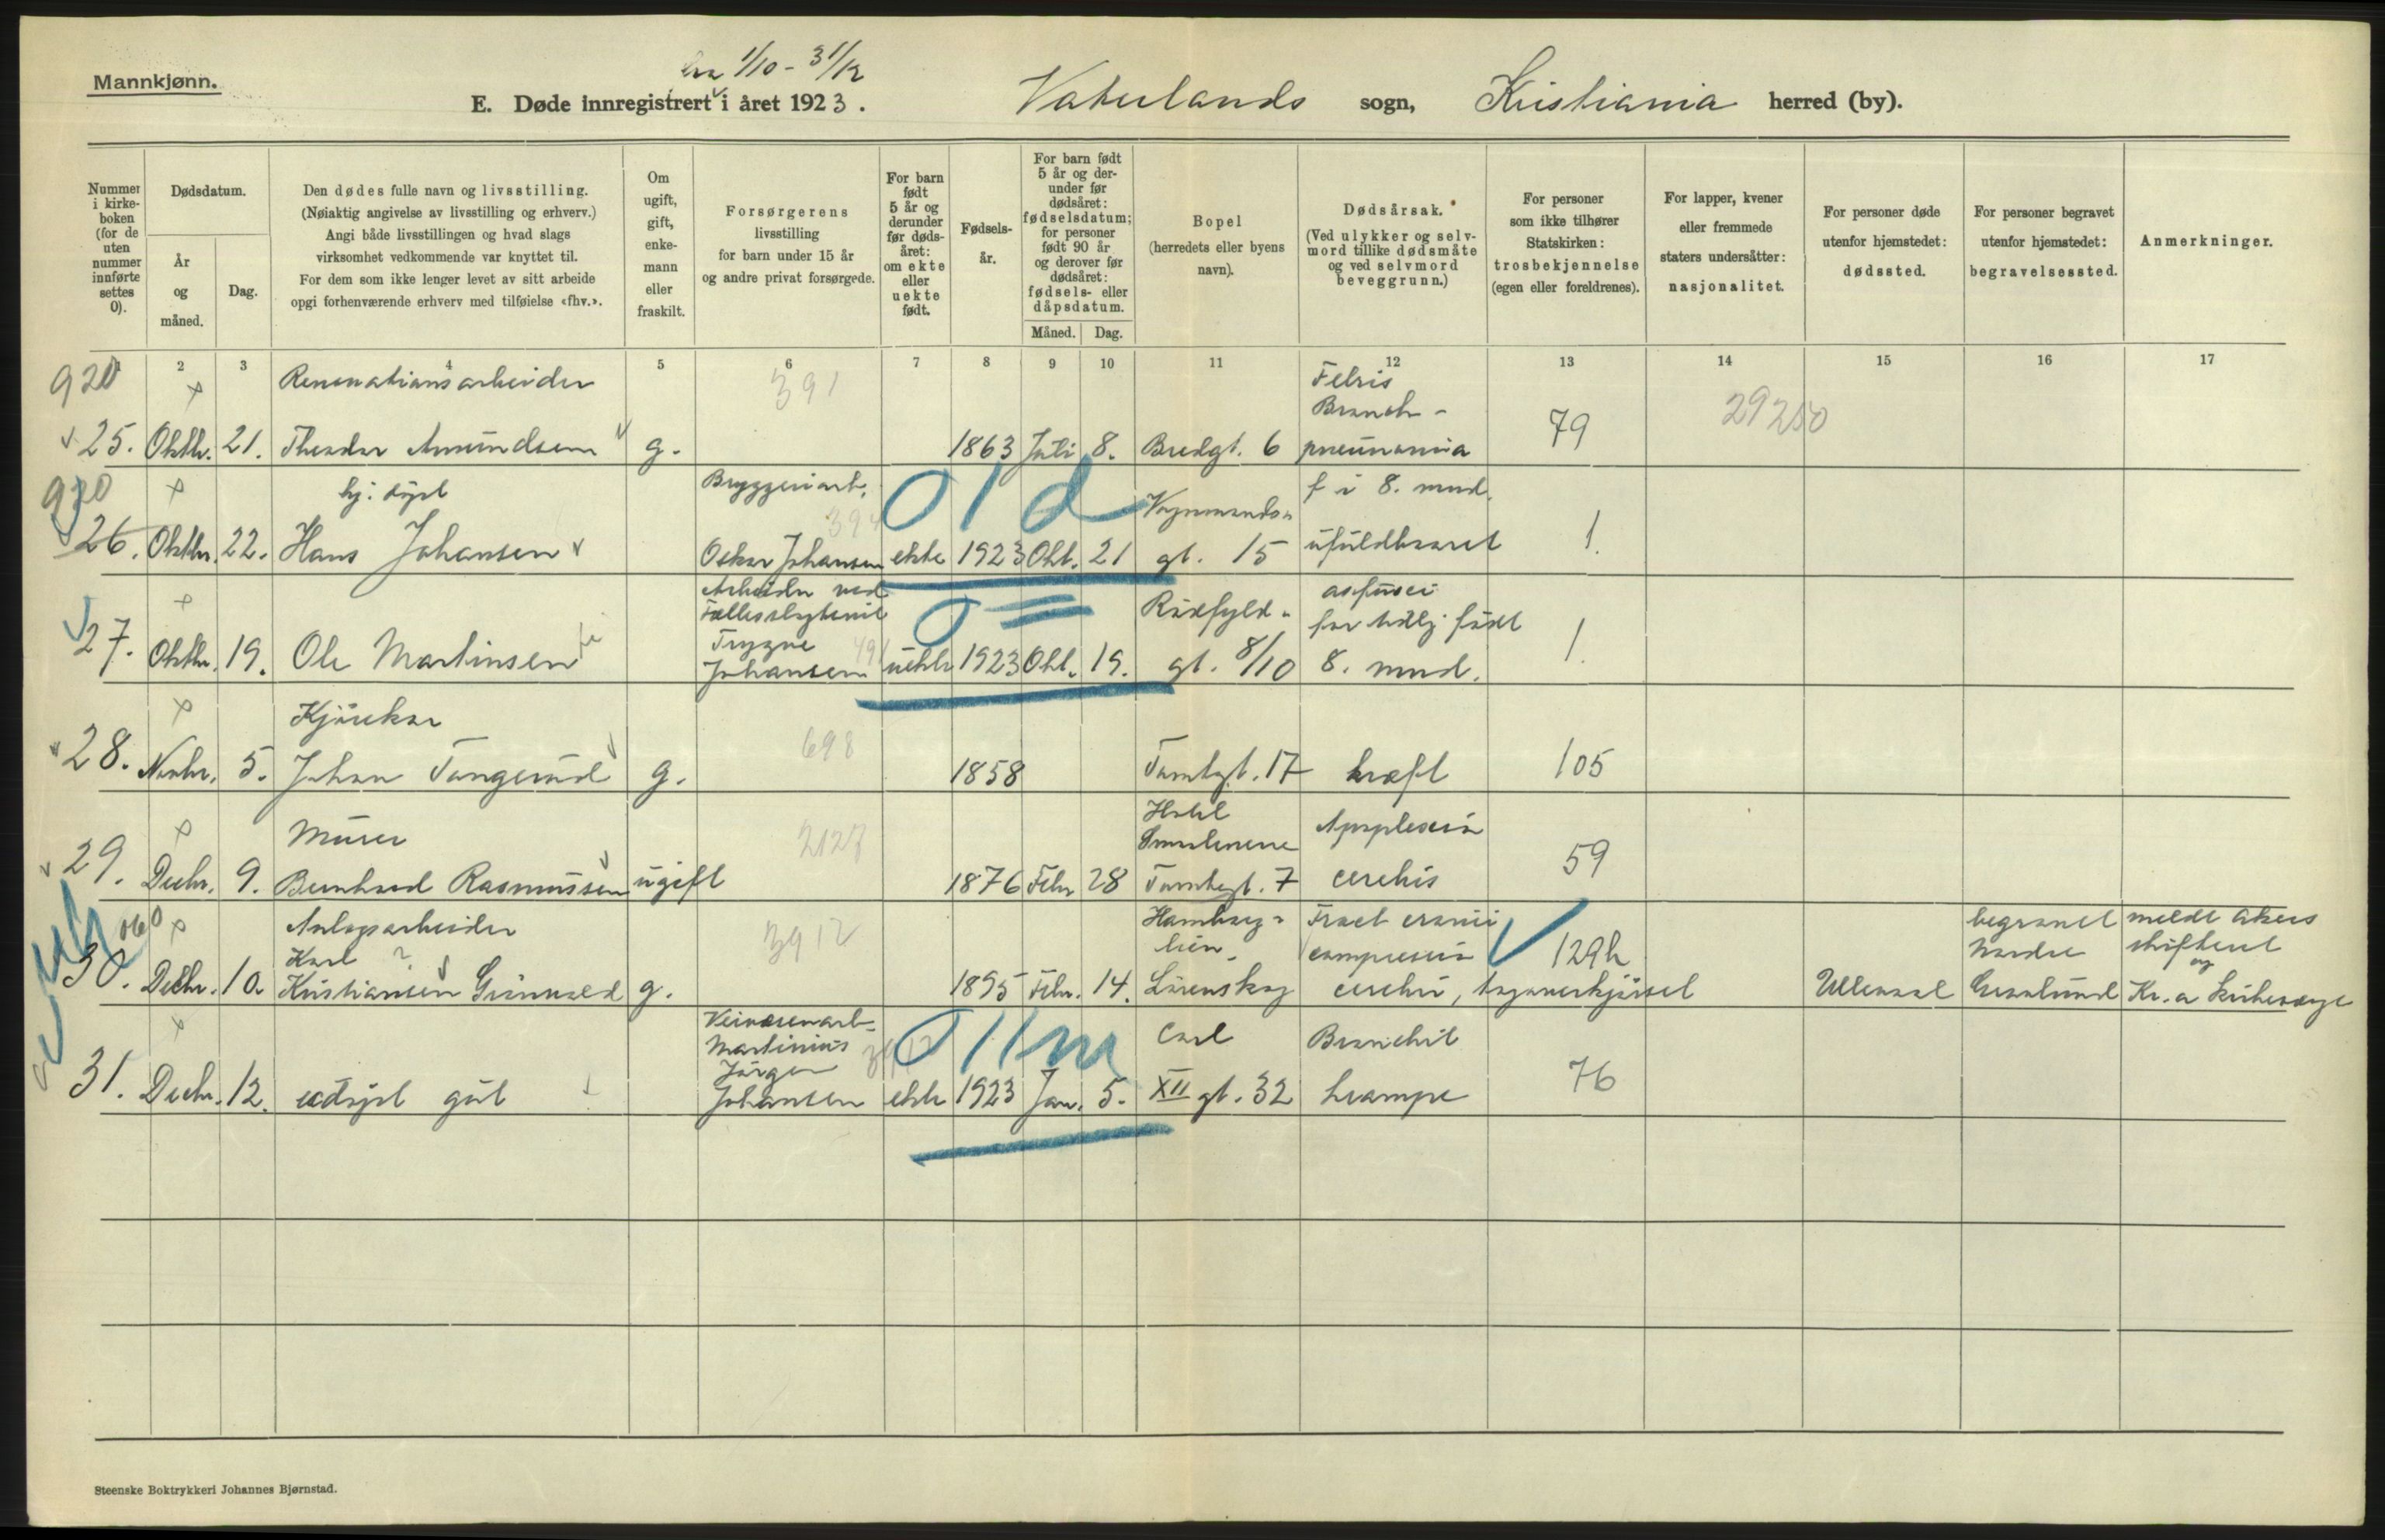 Mannkjønn.
fra 1/10 - 31/12
E. Døde innregistrert i året 1923. Vaterlands sogn, Kristiania herred (by).
Nummer i kirke-boken (for de uten nummer innførte settes 0).
Dødsdatum.
År og måned.
Dag.
Den dødes fulle navn og livsstilling.
(Nøiaktig angivelse av livsstilling og erhverv.)
Angi både livsstillingen og hvad slags
virksomhet vedkommende var knyttet til.
For dem som ikke lenger levet av sitt arbeide
opgi forhenværende erhverv med tilføielse «fhv.».
Om ugift, gift, enke-mann eller fraskilt.
Forsørgerens
livsstilling
for barn under 15 år
og andre privat forsørgede.
For barn født 5 år og derunder før døds-året: om ekte eller uekte født.
Fødsels-år.
For barn født 5 år og der-under før dødsåret: fødselsdatum; for personer født 90 år og derover før dødsåret: fødsels- eller dåpsdatum.
Måned. Dag.
Bopel
(herredets eller byens
navn).
Dødsårsak.
(Ved ulykker og selv-
mord tillike dødsmåte
og ved selvmord
beveggrunn.)
For personer
som ikke tilhører
Statskirken:
trosbekjennelse
(egen eller foreldrenes).
For lapper, kvener
eller fremmede
staters undersåtter:
nasjonalitet.
For personer døde
utenfor hjemstedet:
dødssted.
For personer begravet
utenfor hjemstedet:
begravelsessted.
Anmerkninger.
1 2 3 4 5 6 7 8 9 10 11 12 13 14 15 16 17
920 Renovationsarbeider 391 Febris
Bronch-
25. Oktbr. 21. Theodor Amundsen g. 1863 Juli 8. Bredgt. 6 pneumonia 79 29250
920 hj. døpt Bryggeriarb. 01d Vognmands- f i 8. mnd.
26. Oktbr. 22. Hans Johansen Oskar Johansen ekte 1923 Okt. 21 gt. 15 ufuldbaaret 1.
Arbeider ved
Rödfyld-
for tidlig födt
Trygve
27. Oktbr. 19. Ole Martinsen Johansen uekte 1923 Okt. 19. gt. 8/10 8. mnd. 1.
Kjörekar 698
28. Novbr. 5. Johan Tangerud g. 1858 Tomtgt. 17 kræft 105
Murer 2127 Hotel
Smaalenene Apoplexia
29. Decbr. 9. Bernhard Rasmussen ugift 1876 Febr 28 Tomtegt. 7 cerebis 59
060 Anlegsarbeider 3912 Fract cranii begravet meldt Akers
Karl ? compressio 129h Nordre skifteret
30. Decbr. 10. Kristiansen g. 1895 Febr. 14. Lörenskog cerebri, Ullevaal og
Kr.a
Veivæsenarb.
Martinius 011m Carl Bronchit
Jörgen
31. Decbr. 12. udöpt gut Johansen ekte 1923 Jan. 5. XII gt. 32 krampe 76
Steenske Boktrykkeri Johannes Bjørnstad.